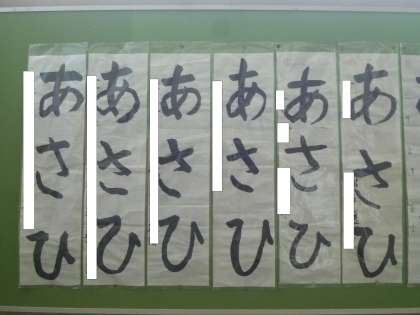 あさひ
あさひ
あさひ
あさひ
あさひ
あさひ